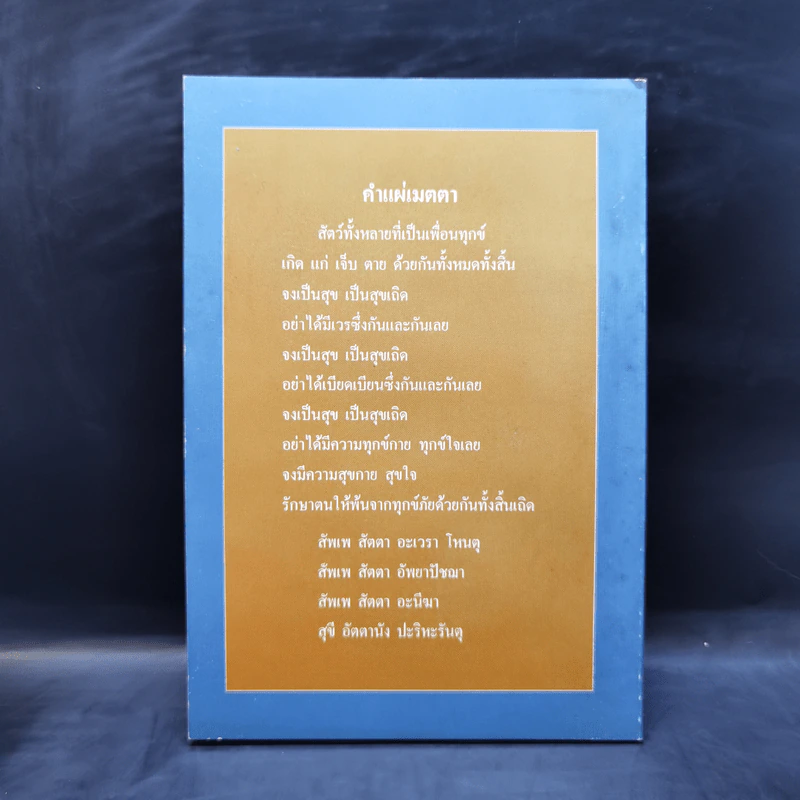 คำแผ่เมตตา
สัตว์ทั้งหลายที่เป็นเพื่อนทุกข์
เกิด แก่ เจ็บ ตาย ด้วยกันทั้งหมดทั้งสิ้น
จงเป็นสุข เป็นสุขเถิด
อย่าได้มีเวรซึ่งกันและกันเลย
จงเป็นสุข เป็นสุขเถิด
อย่าได้เบียดเบียนซึ่งกันและกันเลย
จงเป็นสุข เป็นสุขเถิด
อย่าได้มีความทุกข์กาย ทุกข์ใจเลย
จงมีความสุขกาย สุขใจ
รักษาตนให้พ้นจากทุกข์ภัยด้วยกันทั้งสิ้นเถิด
สัพเพ สัตตา อะเวรา โหนตุ
สัพเพ สัตตา อัพยาปัชฌา
สัพเพ สัตตา อะนีฆา
สุขี อัตตานัง ปะริหะรันตุ